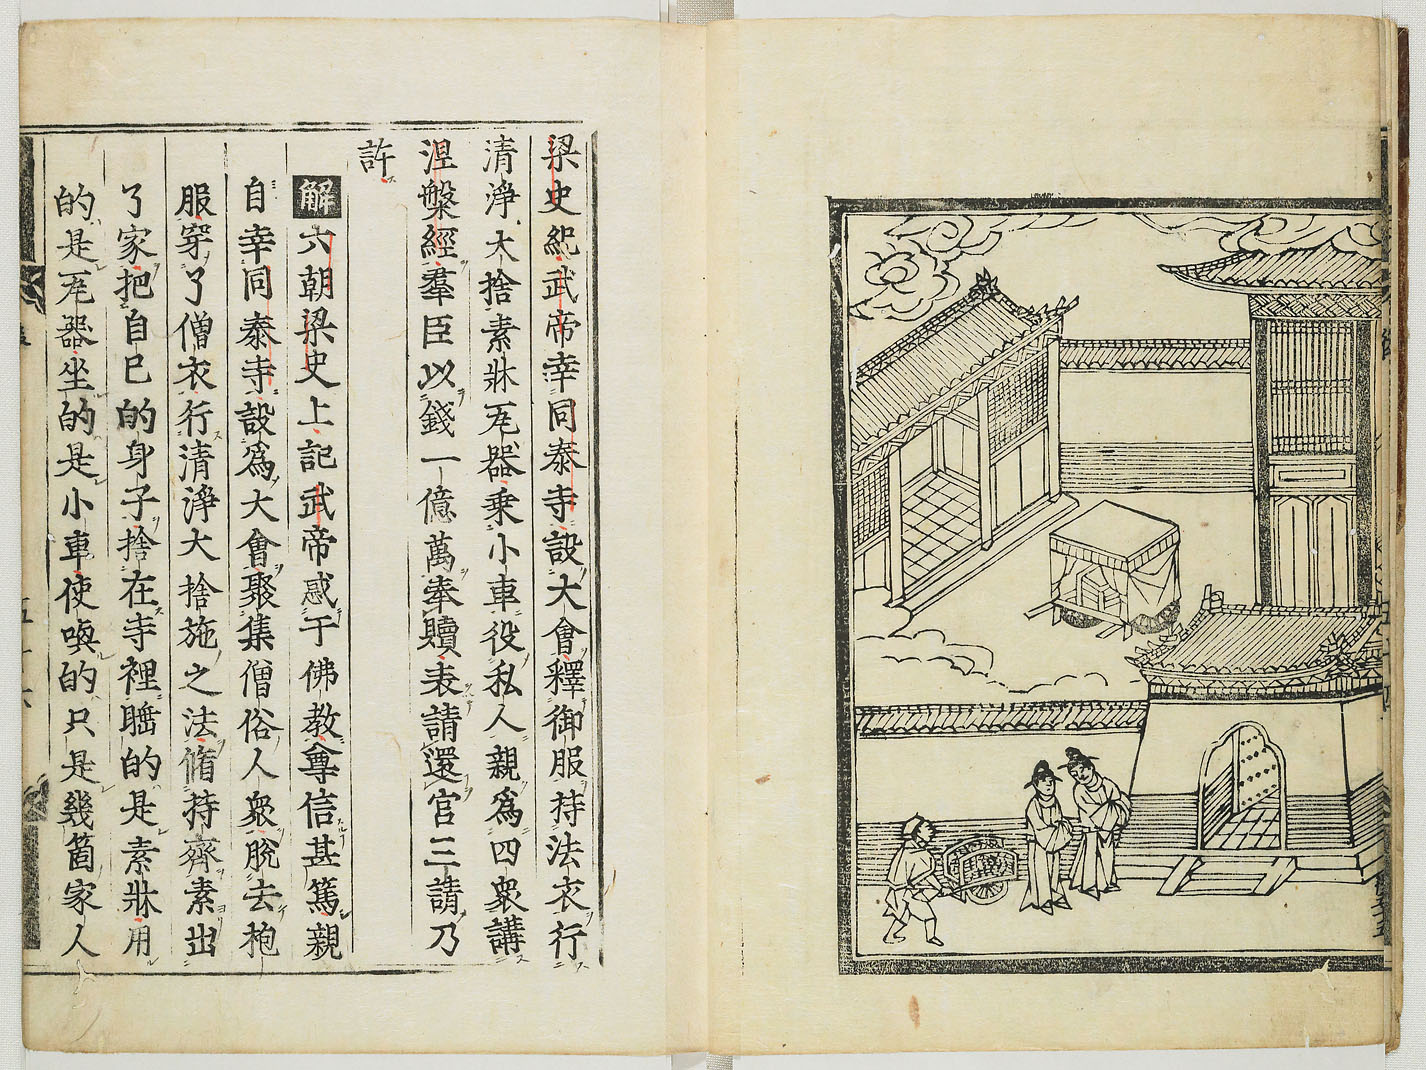 梁史紀武帝幸同泰寺設大會釋御服持法衣行
清淨大捨素牀瓦器乗小車役私人親爲四衆講
涅槃經羣臣以錢一億萬奉贖表請還宫三請乃
許
解六朝梁史上記武帝惑于佛教尊信甚篤親
自幸同泰寺設爲大會聚集僧俗人衆脫去袍
服穿了僧衣行清淨大捨施之法脩持齊素出
了家把自巳的身子捨在寺裡睡的是素牀用
的是瓦器坐的是小車使喚的只是幾箇家人